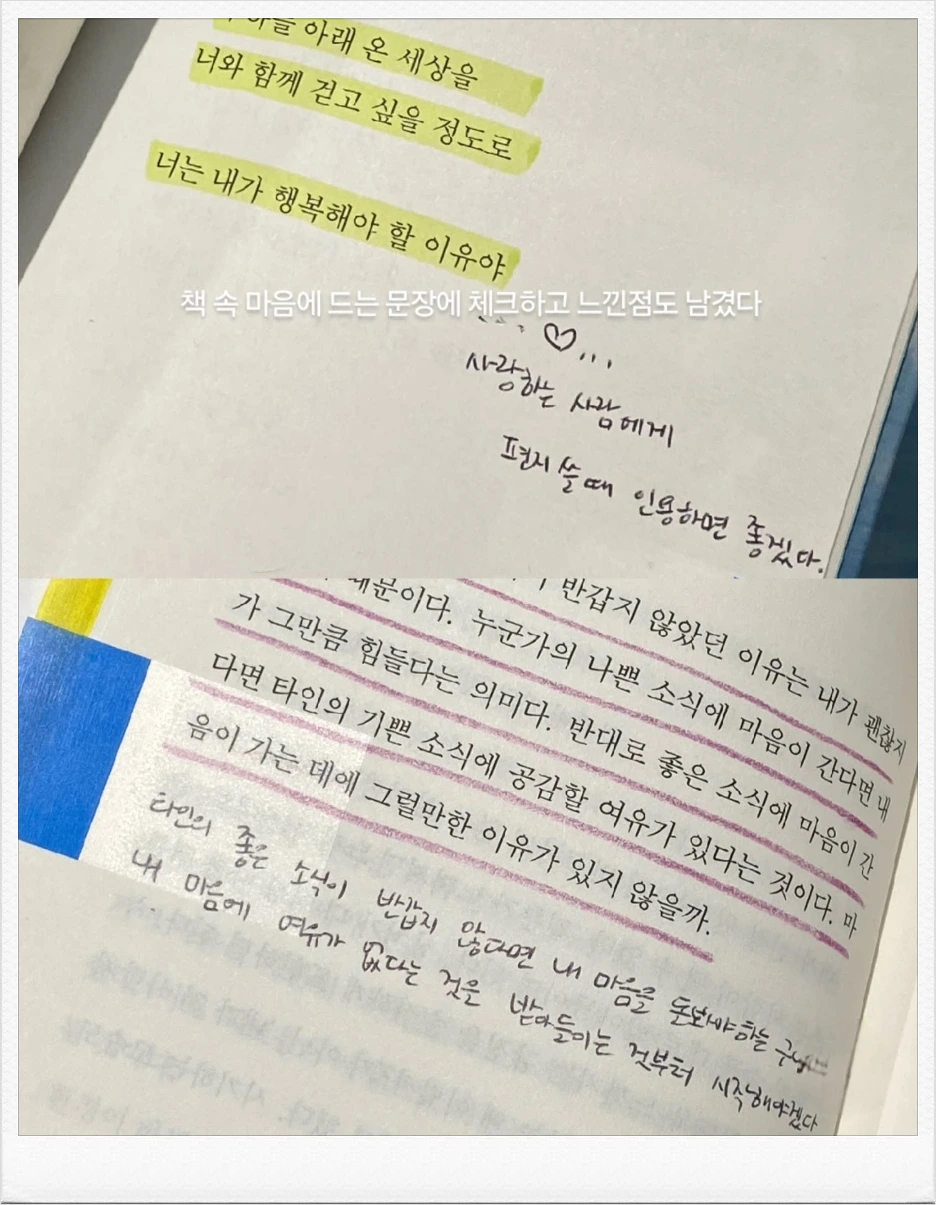 하늘 아래 온 세상을
너와 함께 걷고 싶을 정도로
너는 내가 행복해야 할 이유야
책 속 마음에 드는 문장에 체크하고 느낀점도 남겼다
사랑하는 사람에게
편지 쓸 때 인용하면 좋겠다.
반갑지 않았던 이유는 내가 괜찮지
때문이다. 누군가의 나쁜 소식에 마음이 간다면 내
가 그만큼 힘들다는 의미다. 반대로 좋은 소식에 마음이 간
다면 타인의 기쁜 소식에 공감할 여유가 있다는 것이다. 마
음이 가는 데에 그럴만한 이유가 있지 않을까.
타인의 좋은 소식이 반갑지 않다면 내 마음을 돌봐야하는
내 마음에 여유가 없다는 것을 받아들이는 것부터 시작해야겠다